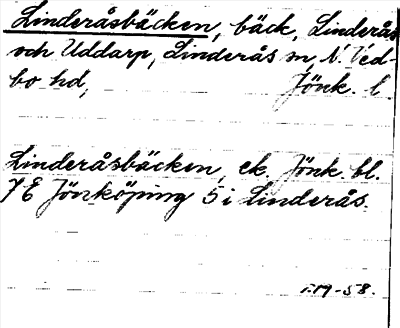 Linderåsbäcken, bäck, Linderås
och Uddarp, Linderås sn, N. Ved-
bo hd, Jönk. l
Linderåsbäcken, ek. Jönk. bl.
7 E Jönköping 5 i Linderås.
-58.